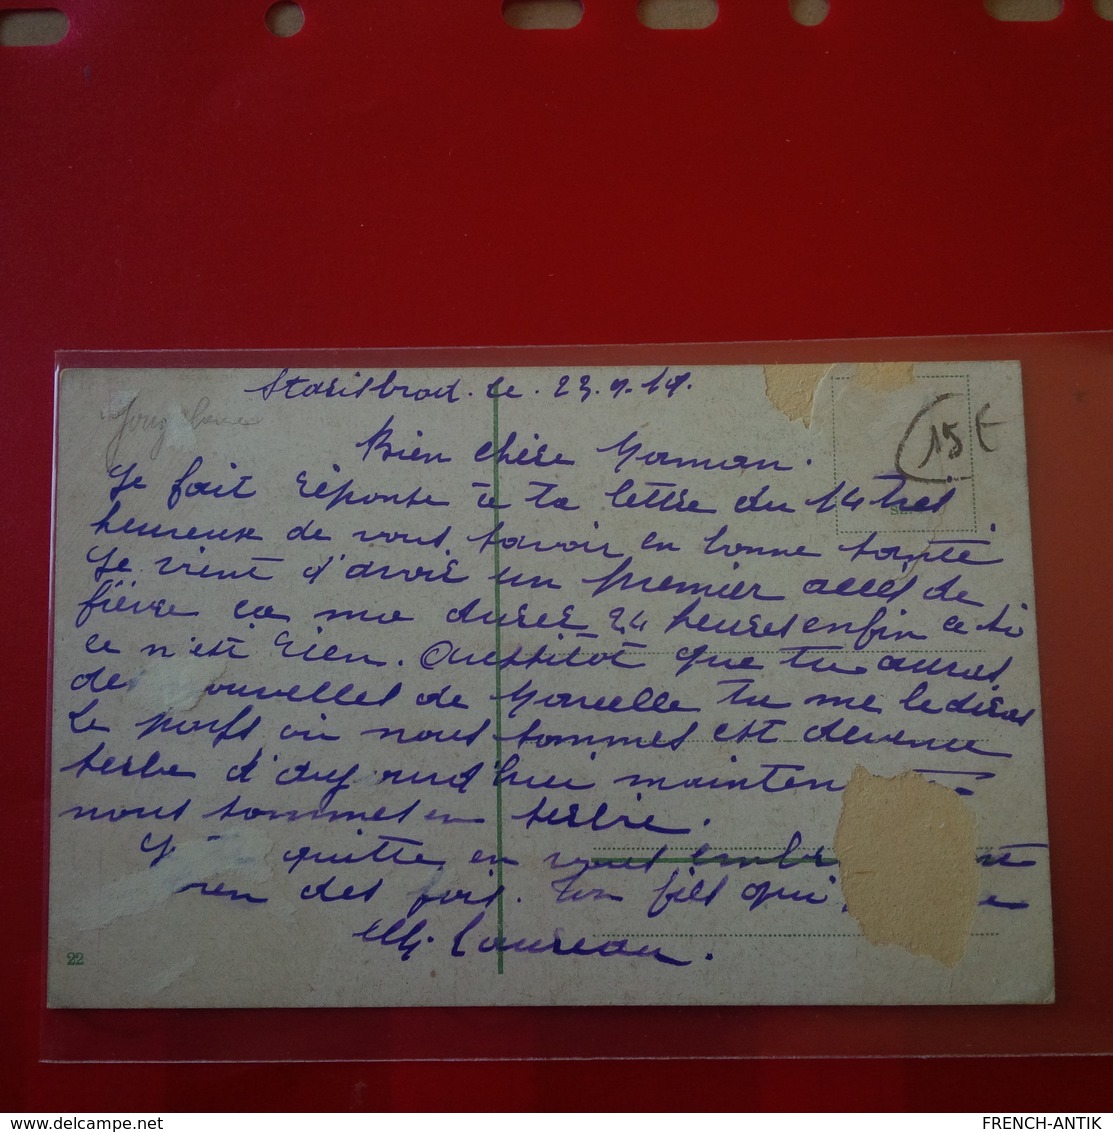 le. 23.9.19.
15 €
Bien chère Maman.
Je fait réponse à ta lettre du 14 tres
heureux de vous savoir en bonne santé
Je vient d'avoir un premier acces de
fièvre ça ma durer 24 heures enfin
ce n'est rien. Aussitot que tu auras
de ouvelles de Marcelle tu me le diras
Le où nous sommes est devenue
serbe d'auj ourd'hui mainten
nous sommes en serbie.
quitte en vous embr
des fois. Ton fils qui
22
delcampe.net
FRENCH-ANTIK